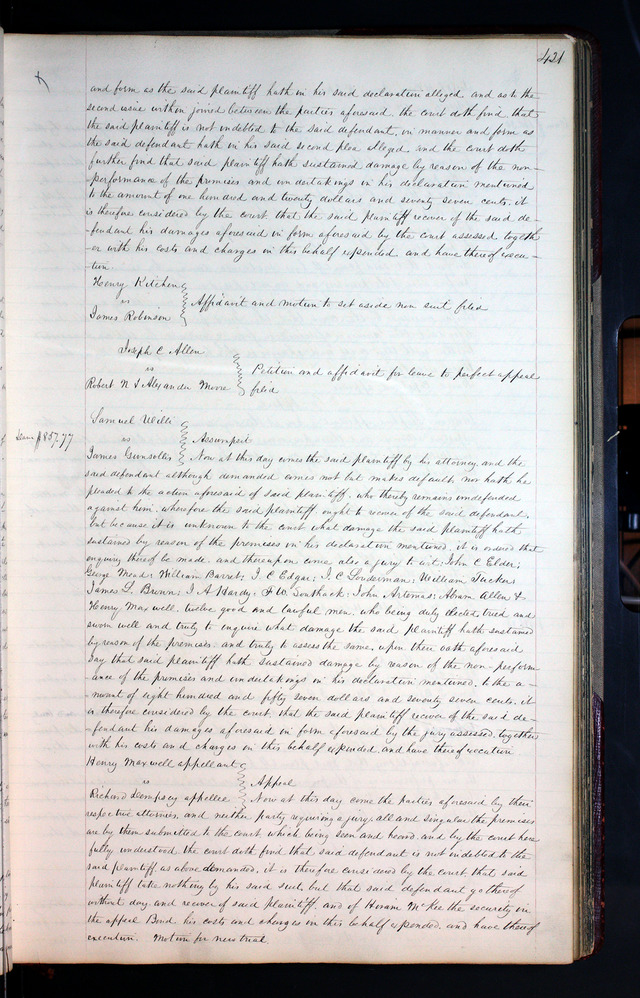 421
and form as the said plaintiff hath in his said declaration alleged and as to the
second issue within joined between the parties aforesaid, the court doth find, that
the said plaintiff is not indebted to the said defendant, in manner and form as
the said defendant hath in his said second plea alleged, and the court doth
further find that said plaintiff hath sustained damage by reason of the non-
-performance of the premises and undertakings in his declaration mentioned
to the amount of one hundred and twenty dollars and seventy seven cents, it
is therefore considered by the court that the said plaintiff recover of the said de-
-fendant his damages aforesaid in form aforesaid by the court assessed togeth
er with his costs and charges in this behalf expended and have thereof execu-
tion.
Henry Kitchen
vs
James Robinson
Affidavit and motion to set aside non suit filed
Joseph C Allen
vs
Robert N & Alexander Moore
Petition and affidavit for leave to perfect appeal
filed
Samuel
vs
James Gunsollis
Assumpsit
$857.77
Now at this day comes the said plaintiff by his attorney, and the
said defendant although demanded comes not but makes default, nor hath he
pleaded to the action aforesaid of said plaintiff, who thereby remains undefended
against him, wherefore the said plaintiff ought to recover of the said defendant,
but because it is unknown to the court what damage the said plaintiff hath
sustained by reason of the premises in his declaration mentioned, it is ordered that
enquiry thereof be made, and thereupon come also a jury to wit: John C Elder;
George Mead; William Barret; J C Edgar; J. C Louderman; William Tucker;
James L. Brown; J A Hardy; F W. Southack; John Artemas; Abram Allen &
Henry Maxwell, twelve good and lawful men, who being duly elected tried and
sworn well and truly to enquire what damage the said plaintiff hath sustained
by reason of the premises and truly to assess the same, upon their oath aforesaid
say that said plaintiff hath sustained damage by reason of the non-perform-
ance of the premises and undertakings in his declaration mentioned, to the a-
mount of eight hundred and fifty seven dollars and seventy seven cents, it
is therefore considered by the court, that the said plaintiff recover of the said de-
fendant his damages aforesaid in form aforesaid by the jury assessed, together
with his costs and charges in this behalf expended, and have thereof execution
Henry Maxwell appellant
vs
Richard Dempsey appellee
Appeal
Now at this day come the parties aforesaid by their
respective attornies, and neither party requiring a jury, all and singular the premises
are by them submitted to the court which being seen and heard and by the court here
fully understood the court doth find that said defendant is not indebted to the
said plaintiff as above demanded, it is therefore considered by the court that said
plaintiff take nothing by his said suit, but that said defendant go thereof
without day and recover of said plaintiff, and of Hiram McKee the security in
the appeal Bond, his costs and charges in this behalf expended, and have thereof
execution. Motion for new trial.